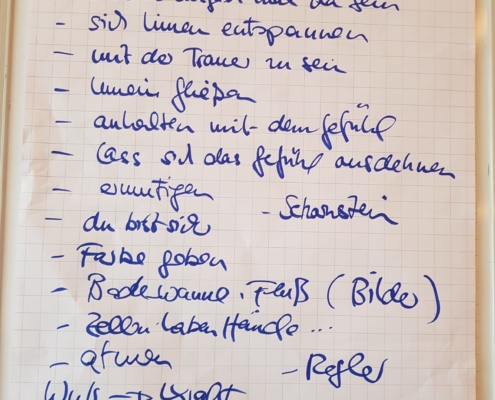 da sein
- sich linnen entspannen
- mit der Trauer zu sein
- hinein fließen
- anhalten mit dem Gefühl
- Lass sich das Gefühl ausdehnen
- ermutigen - Schornstein
- du bist sicher
- Farbe geben
- Badewanne, Fluß (Bilder)
- Zellen haben Hände...
- atmen - Regler